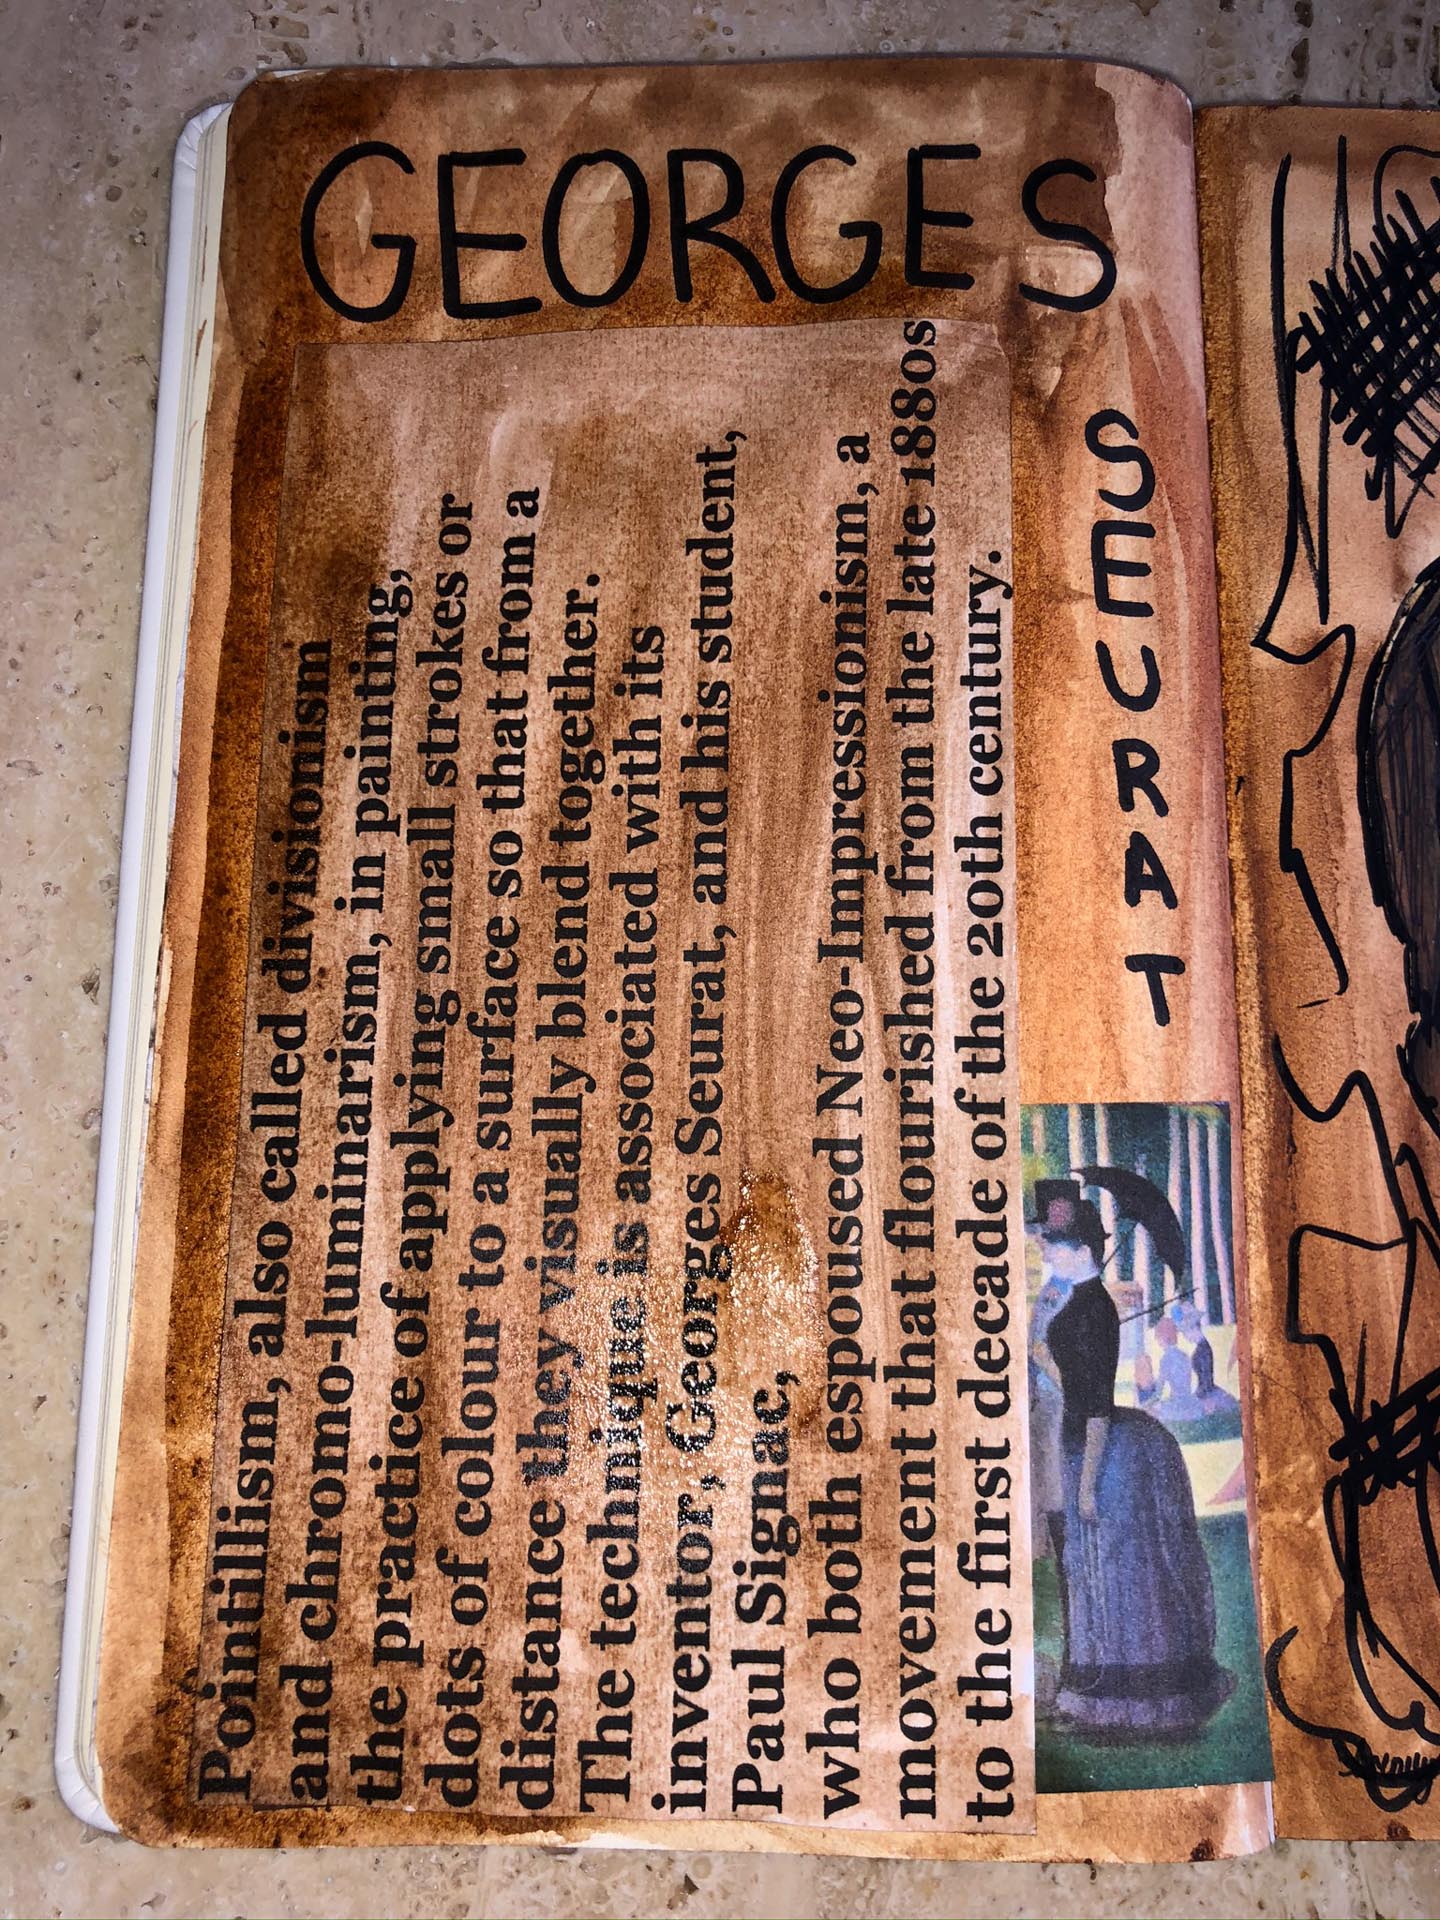 GEORGES
SEURAT
Pointillism, also called divisionism
and chromo-luminarism, in painting,
the practice of applying small strokes or
dots of colour to a surface so that from a
distance they visually blend together.
The technique is associated with its
inventor, Georges Seurat, and his student,
Paul Signac,
who both espoused Neo-Impressionism, a
movement that flourished from the late 1880s
to the first decade of the 20th century.